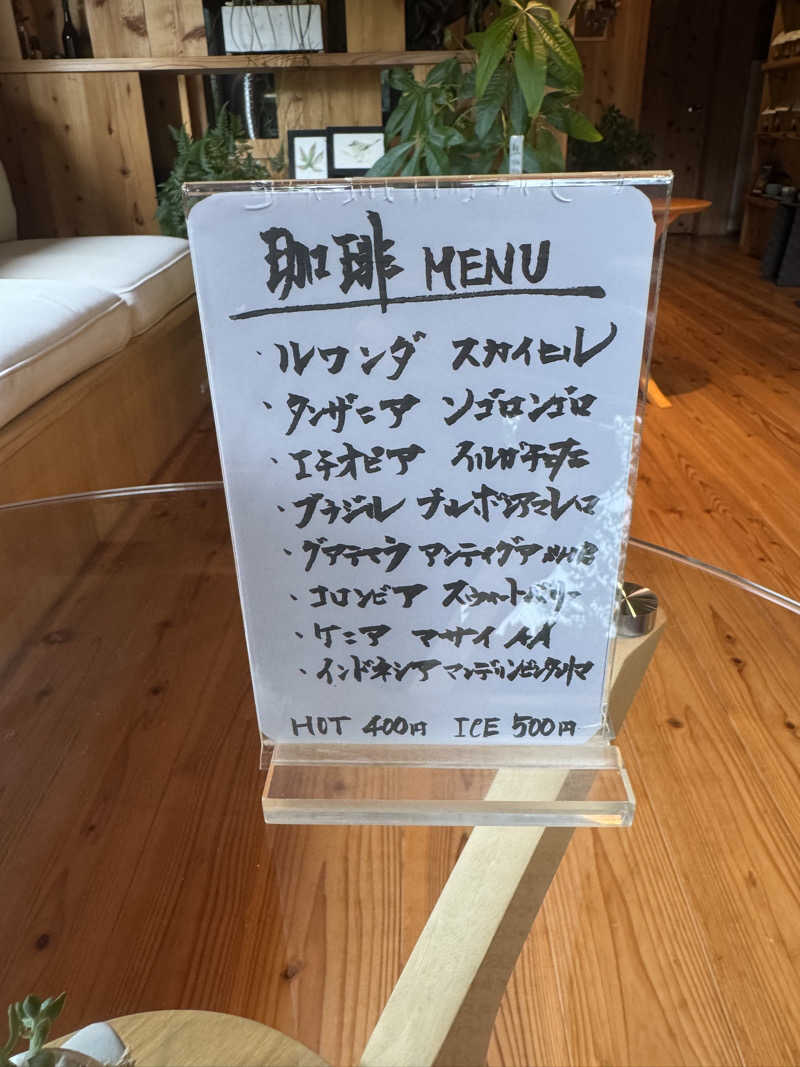 珈琲 MENU
・ルワンダ スカイヒル
・タンザニア ンゴロンゴロ
・エチオピア イルガチェフェ
・ブラジル ブルボンアマレロ
・グアテマラ アンティグア
・コロンビア スウィートベリー
・ケニア マサイ AA
・インドネシア マンデリンビンタンリマ
HOT 400円 ICE 500円